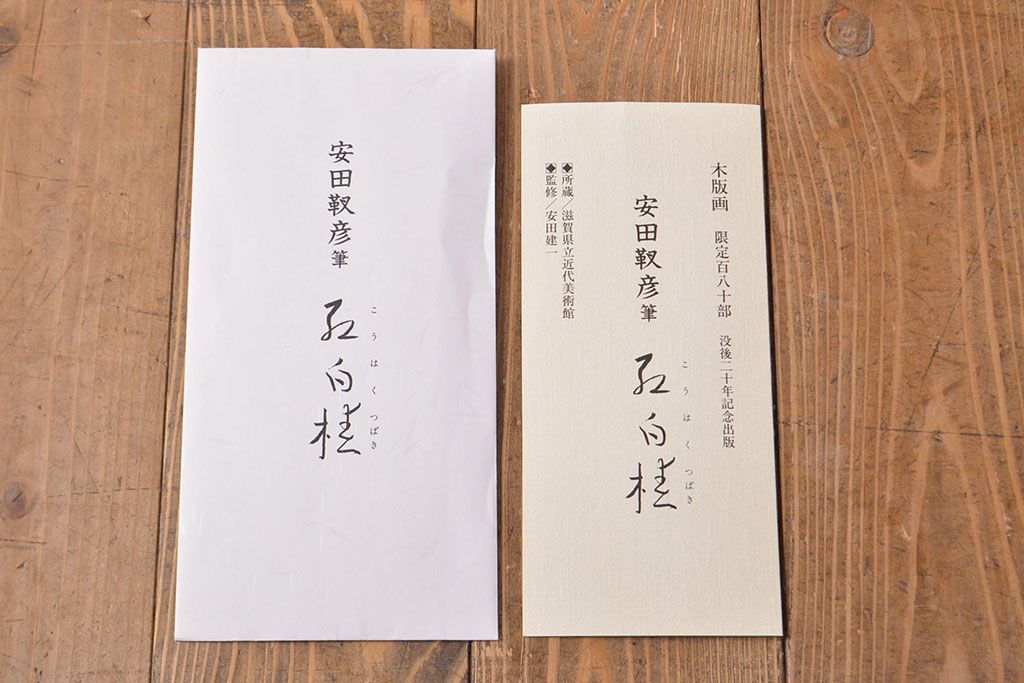 こうはくつばき
安田靫彦筆 紅白椿
木版画 限定百八十部 没後二十年記念出版
こうはくつばき
安田靫彦筆 紅白椿
◆所蔵／滋賀県立近代美術館
◆監修／安田建一